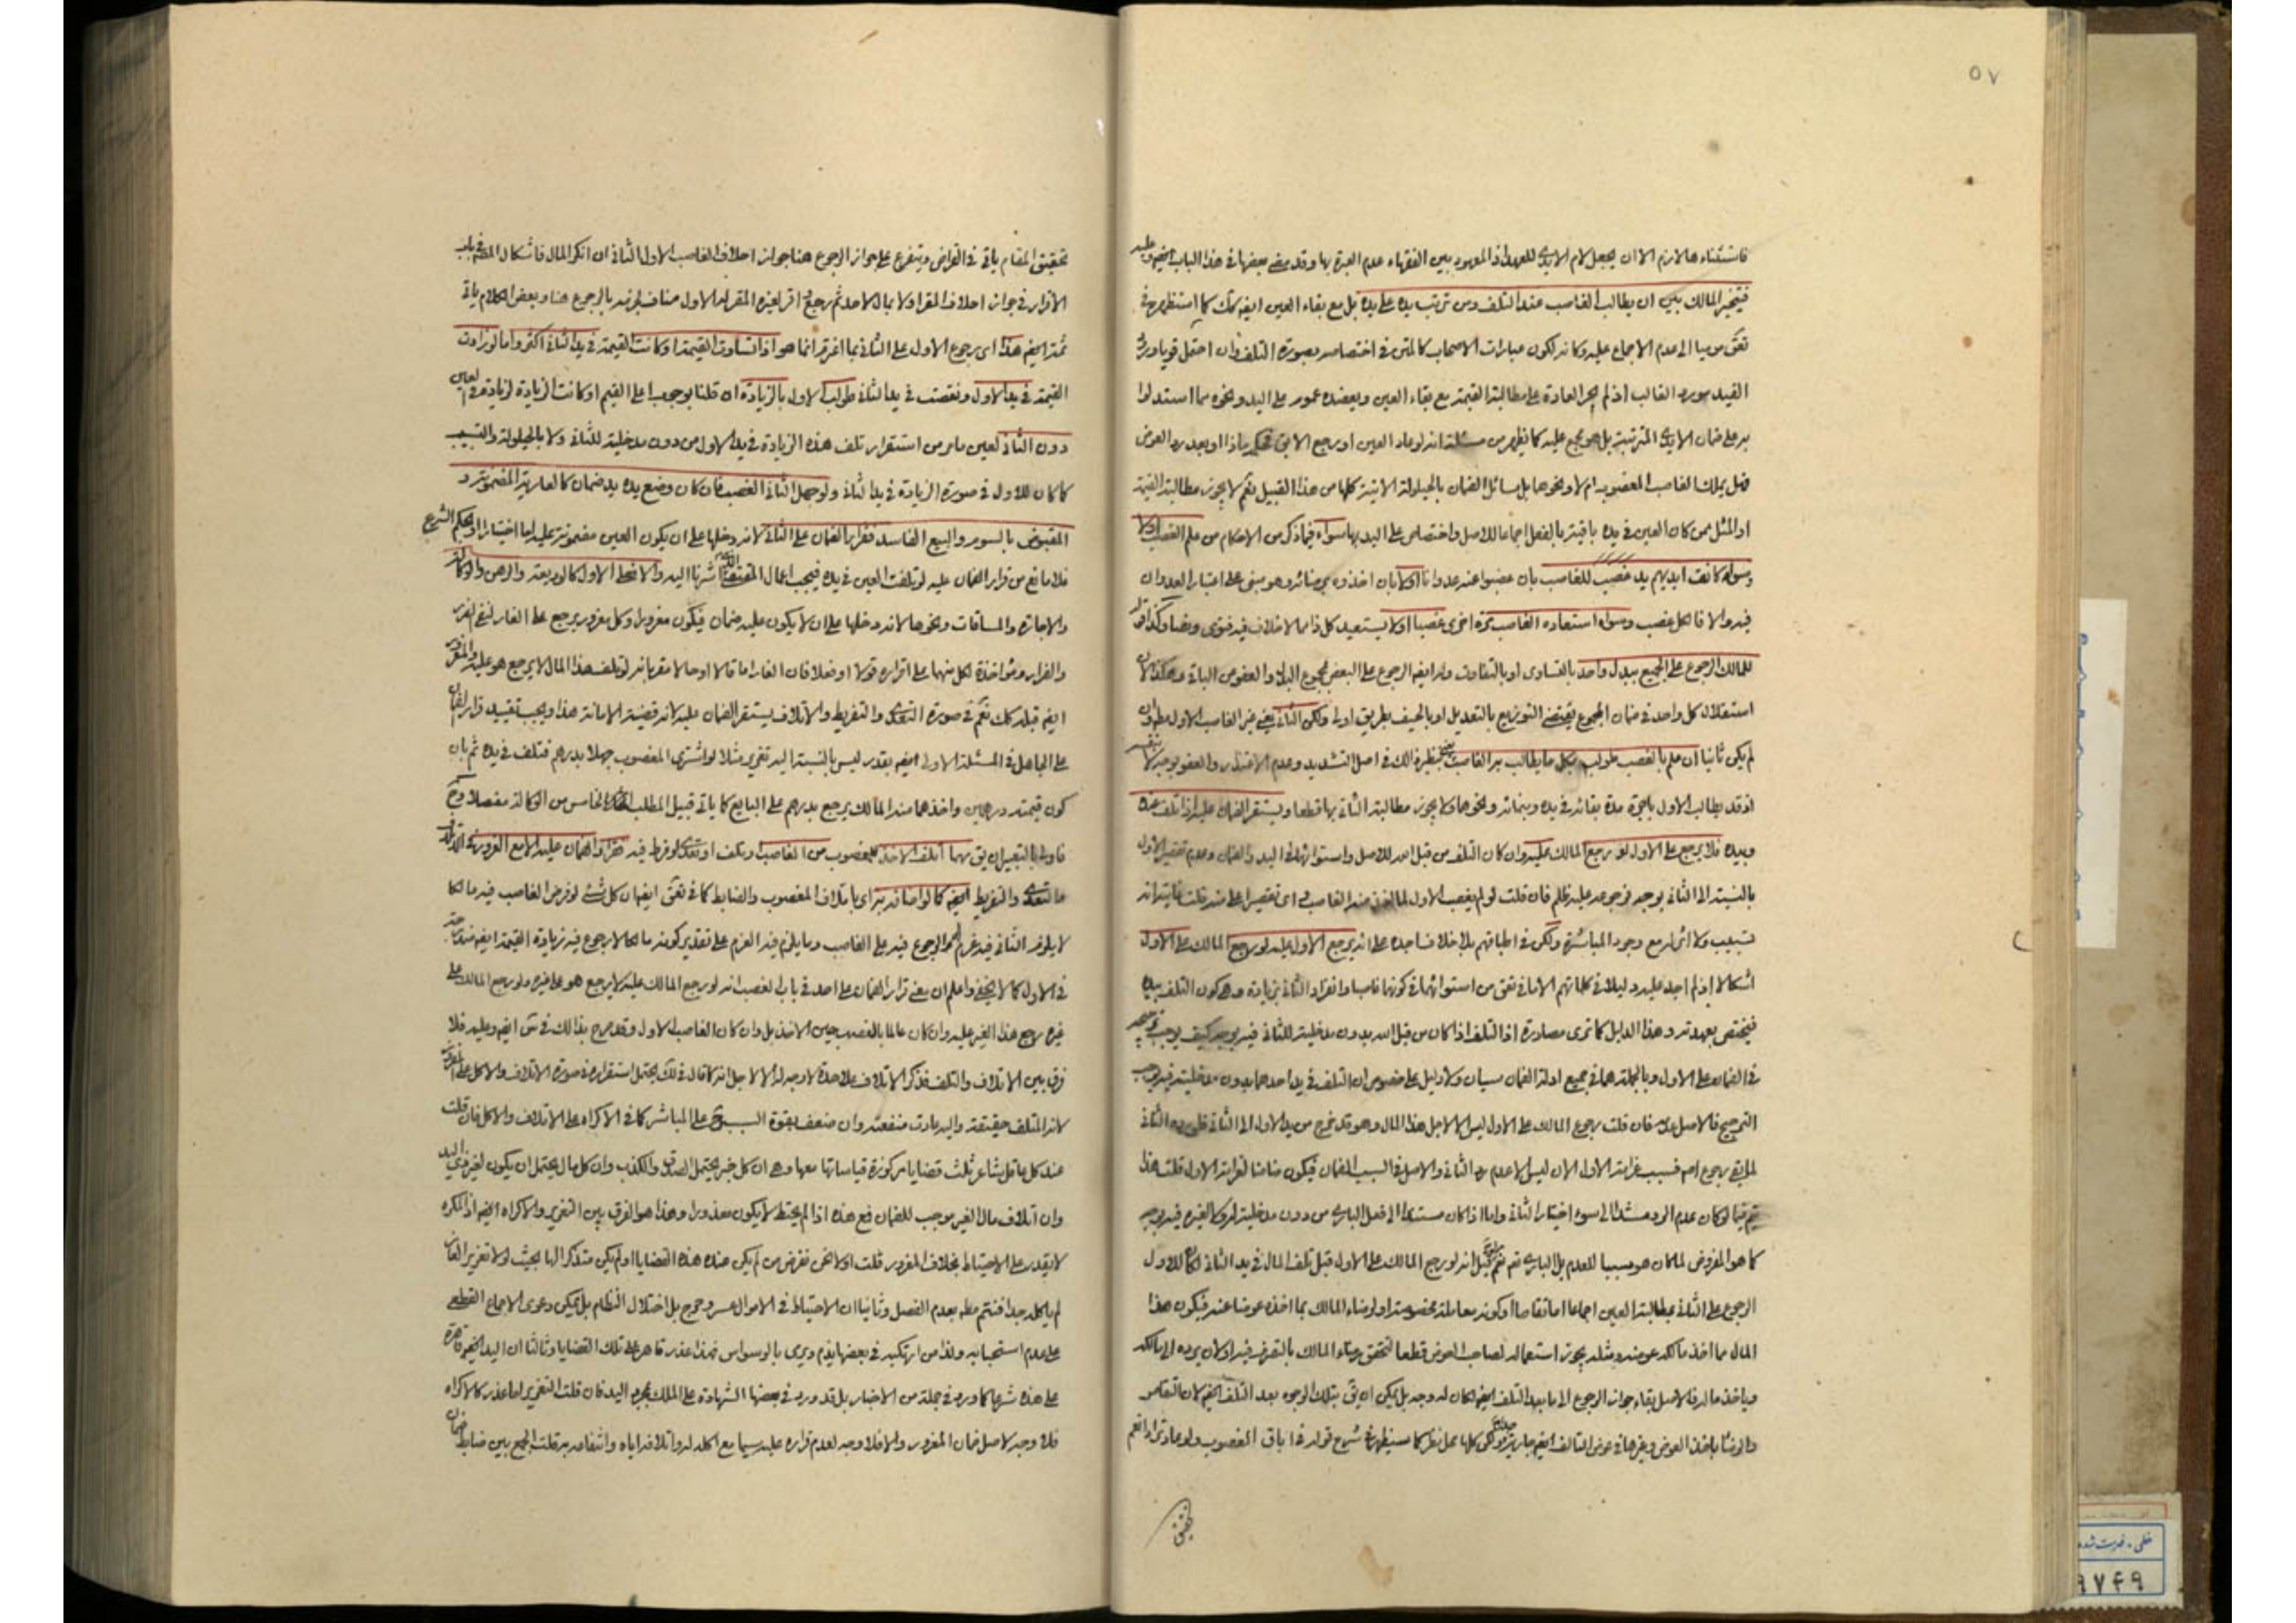 ٥٧
فاستثناء هالازم الا ان يجعل لام الايدى للعهد اذ المعهود بين الفقهاء عدم العبرة بها وقد مضى بعضها فى هذا الباب ايضم وعليه
فيتخير المالك بين ان يطالب الغاصب عند التلف ومن ترتب يده على يده بل مع بقاء العين ايضم كك كما استظهره فى
الى عدم الاجماع عليه وكانه لكون عبارات الاصحاب كالمتن فى اختصاصه بصورة التلف وان احتمل قويا ورود
القيد مورد الغالب اذ لم يجر العادة على مطالبة القيمة مع بقاء العين ويعضده عموم على اليد ونحوه مما استدلوا
به على ضمان الايدى المترتبة بل هو مجمع عليه كما يظهر من مسئلة انه لو عاد العين او رجع الابق يحكم بماذا او بعد رد العوض
فهل يملك الغاصب المغصوب ام لا ونحوها بل مسائل الضمان بالحيلولة الاتية كلها من هذا القبيل نعم لا يجوز مطالبة القيمة
او المثل ممن كان العين فى يده باقية بالفعل اجماعا للاصل واختصاص على اليد بها سواء فيما ذكر من الاحكام من علم الغصب اولا
وسواء كانت ايديهم يد غصب للغاصب بان غصبوا عنه عدوانا اولا بان اخذوه برضائه وهو مبنى على اعتبار العدوان
فيه والا فالكل غصب وسواء استعاده الغاصب مرة اخرى غصبا او لا يستعيد كل ذا مما لاخلاف فيه فتوى ونصا وكذا
للمالك الرجوع على الجميع ببدل واحد بالتساوى او بالتفاوت وله ايضه الرجوع على البعض بمجموع البدل والعفو عن الباقى وهكذا لان
استقلال كل واحد فى ضمان المجموع يقتضى التوزيع بالتعديل او بالحيف بطريق اولى ولكن الثانى يعنى غير الغاصب الاول
لم يكن ثانيا ان علم بالغصب طولب بكل ما يطالب به الغاصب نظير ذلك فى اصل التشديد وعدم الاعتذار والعفو بوجه لا
اذ قد يطالب الاول باجرة مدة بقائه فى يده وبنمائه ونحوها ولا يجوز مطالبة الثانى بها قطعا ويستقر الضمان عليه اذا تلف عنده
وبيده فلا يرجع على الاول لو رجع المالك عليه وان كان التلف من قبل الله للاصل واستوائهما فى اليد والضمان وعدم تقصير الاول
بالنسبة الى الثانى بوجه فرجوعه عليه ظلم فان قلت لو لم يغصب الاول لما اخذ منه الغاصب فاى تقصير اعلى منه قلت غايته انه
تسبيب ولا اثر له مع وجود المباشرة ولكن فى اطباقهم بلا خلاف اجده على انه يرجع الاول عليه لو رجع المالك على الاول
اشكالا اذ لم اجد عليه دليلا فى كلماتهم الا ما فى من استوائهما فى كونهما غاصبا وانفراد الثانى بزيادة وهى كون التلف بيده
فيختص بعهدته وهذا الدليل كما ترى مصادرة اذ التلف اذا كان من قبل الله بدون مدخلية للثانى فيه بوجه كيف يوجب
فى الضمان على الاول وبالجملة هما فى جميع ادلة الضمان سيان ولا دليل على خصوص ان التلف فى يد احدهما بدون مدخليته فيه يوجب
الترجيح فالاصل عدمه فان قلت رجوع المالك على الاول ليس الا لاجل هذا المال وهو قد خرج من يد الاول الى الثانى فلو رده الثانى
لم يبق رجوع اصم فسبب غرامة الاول الان ليس الا عدم رد الثانى والاصل فى السبب الضمان فيكون ضامنا لغرامة الاول قلت هذا
يتم فيما لو كان عدم الرد مستندا الى سوء اختيار الثانى واما اذا كان مستندا الى فعل البارى من دون مدخلية له ولا لغيره فيه بوجه
كما هو المفروض لما كان هو مسببا للعدم بل البارى نعم قيل انه لو رجع المالك على الاول قبل تلف المال فى يد الثانى كان للاول
الرجوع على الثانى بمطالبة العين اجماعا اما تقاصا او كونه معاملة مخصوصة او لرضاء المالك بما اخذه عوضا عنه فيكون هذا
المال مما اخذ مالكه عوضه ومثله يجوز استعماله لصاحب العوض قطعا لتحقق رضاء المالك بالتصرف فيه او لان يرده الى مالكه
وياخذ ماله فالاصل بقاء جواز الرجوع الى ما بعد التلف ايضم لكان له وجه بل يمكن ان يق بتلك الوجوه بعد التلف ايضم لان التقاص
والرضا باخذ العوض وغيرها فى عوض التالف ايضم جارية ولكن كلها محل نظر كما سيظهر فى شرح قوله فى اباق المغصوب ولو عاد ترادا نعم
تحقيق
تحقيق المقام ياتى فى القراض ويتفرع على جواز الرجوع هنا جواز احلاف الغاصب الاول الثانى ان انكر المال فاشكال المصم فى باب
الاقرار فى جواز احلاف المقر اولا بمال لاحد ثم رجع واقر لغيره المقر له الاول مناف لجزمه بالرجوع هنا وبعض الكلام ياتى
ثمة ايضم هذا اى رجوع الاول على الثانى بما اغترم انما هو اذا تساوت القيمة او كانت القيمة فى يد الثانى اكثر واما لو زادت
القيمة فى يد الاول ونقصت فى يد الثانى طولب الاول بالزيادة ان قلنا بوجوب اعلى القيم او كانت الزيادة لزيادة فى العين
دون الثانى لعين ما مر من استقرار تلف هذه الزيادة فى يد الاول من دون مدخلية للثانى ولا بالحيلولة والتسبيب
كما كان للاول فى صورة الزيادة فى يد الثانى ولو جهل الثانى الغصب فان كان وضع يده يد ضمان كالعارية المضمونة و
المقبوض بالسوم والبيع الفاسد فقرار الضمان على الثانى لانه دخلها على ان يكون العين مضمونة عليه اما اختيارا او بحكم الشرع
فلا مانع من قرار الضمان عليه لو تلفت العين فى يده فيجب اعمال المقتضى اليد والا فعلى الاول كالوديعة والرهن والوكالة
والاجارة والمساقات ونحوها لانه دخلها على ان لا يكون عليه ضمان فيكون مغرورا وكل مغرور يرجع على الغار لنفى الضرر
والضرار ومؤاخذة لكل منهما على اقراره قولا او فعلا فان الغار اما قالا او حالا مقر بانه لو تلف هذا المال لا يرجع هو عليه والمغرور
ايضم قبله كك نعم فى صورة التعدى والتفريط والاتلاف يستقر الضمان عليه لانه قضية الامانة هذا ويجب تقييد قرار الضمان
على الجاهل فى المسئلة الاولى ايضم بقدر ليس بالنسبة اليه تغرير مثلا لو اشترى المغصوب جهلا بدرهم فتلف فى يده ثم بان
كون قيمته درهمين واخذهما منه المالك يرجع بدرهم على البايع كما ياتى قبيل المطلب الخامس من الوكالة مفصلا وح
فاولى بالتعبير ان يق مهما اتلف الاخذ للمغصوب من الغاصب وتلف او تعدى او فرط فيه فقرار الضمان عليه الا مع الغرور
ما لتعدى والتفريط ايضم كالواضافه براى باتلاف المغصوب والضابط كما فى ايضم ان كل شئ لو فرض الغاصب فيه مالكا
لا يلزم الثانى فيه غرم له الرجوع فيه على الغاصب وما يلزم فيه الغرم على تقدير كونه مالكا لا رجوع فيه زيادة القيمة ايضم
فى الاول كما لا يخفى واعلم ان معنى قرار الضمان على احد فى باب الغصب انه لو رجع المالك عليه لا يرجع هو على غيره ولو رجع المالك على
غيره رجع هذا الغير عليه وان كان عالما بالغصب حين الاخذ بل وان كان الغاصب الاول وقد صرح بذالك فى ايضم وعليه فلا
فرق بين الاتلاف والتلف فذكر الاتلاف على حدة لا وجه له الا لاجل انه كما قال فى لك يحتمل استقراره فى صورة الاتلاف والاكل على المغرور
لانه المتلف حقيقة واليه عادت منفعته وان ضعف بقوة السبب على المباشر كما فى الاكراه على الاتلاف والاكل فان قلت
عند كل عاقل شاعر ثلث قضايا مركوزة قياساتها معها وهى ان كل خبر يحتمل الصدق والكذب وان كل مال يحتمل ان يكون لغير ذى اليد
وان اتلاف مال الغير موجب للضمان فمع هذه اذا لم يحتط لا يكون معذورا وهذا هو الفرق بين التغرير والاكراه ايضم اذ المكره
لا يقدر على الاحتياط بخلاف المغرور قلت اولا نحن نفرض من لم يكن عنده هذه القضايا او لم يكن متذكرا لها بحيث لولا تغرير الغار
لم ياكله جدا فنتم مطم بعدم الفصل وثانيا ان الاحتياط فى الاموال عسر وحرج بل اختلال النظام بل يمكن دعوى الاجماع القطعى
على عدم استحبابه ولذا من ارتكبه فى بعضها يذم ويرمى بالوسواس فهذا عذر قاهر على تلك القضايا وثالثا ان اليد ايضم قاهرة
على هذه شرعا كما ورد فى جملة من الاخبار بل قد ورد فى بعضها الشهادة على الملك بمجرد اليد فان قلت التغرير اما عذر كالاكراه
فلا وجه لاصل ضمان المغرور والا فلا وجه لعدم قراره عليه سيما مع اكله له واتلافه اياه وانتفاعه به قلت الجمع بين ضابط ضمان
خطى - فهرست شده
٩٧٤٩